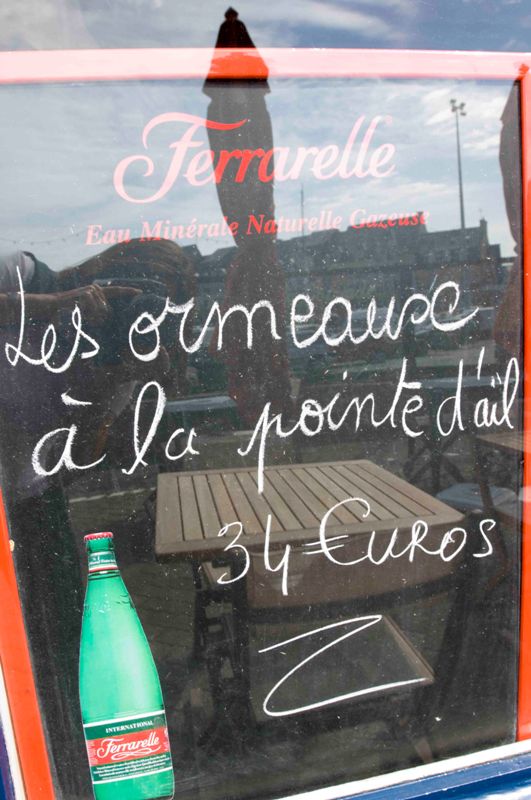 Ferrarelle
Eau Minérale Naturelle Gazeuse
Les ormeaux
à la pointe d'ail
34 €uros
INTERNATIONAL
Ferrarelle